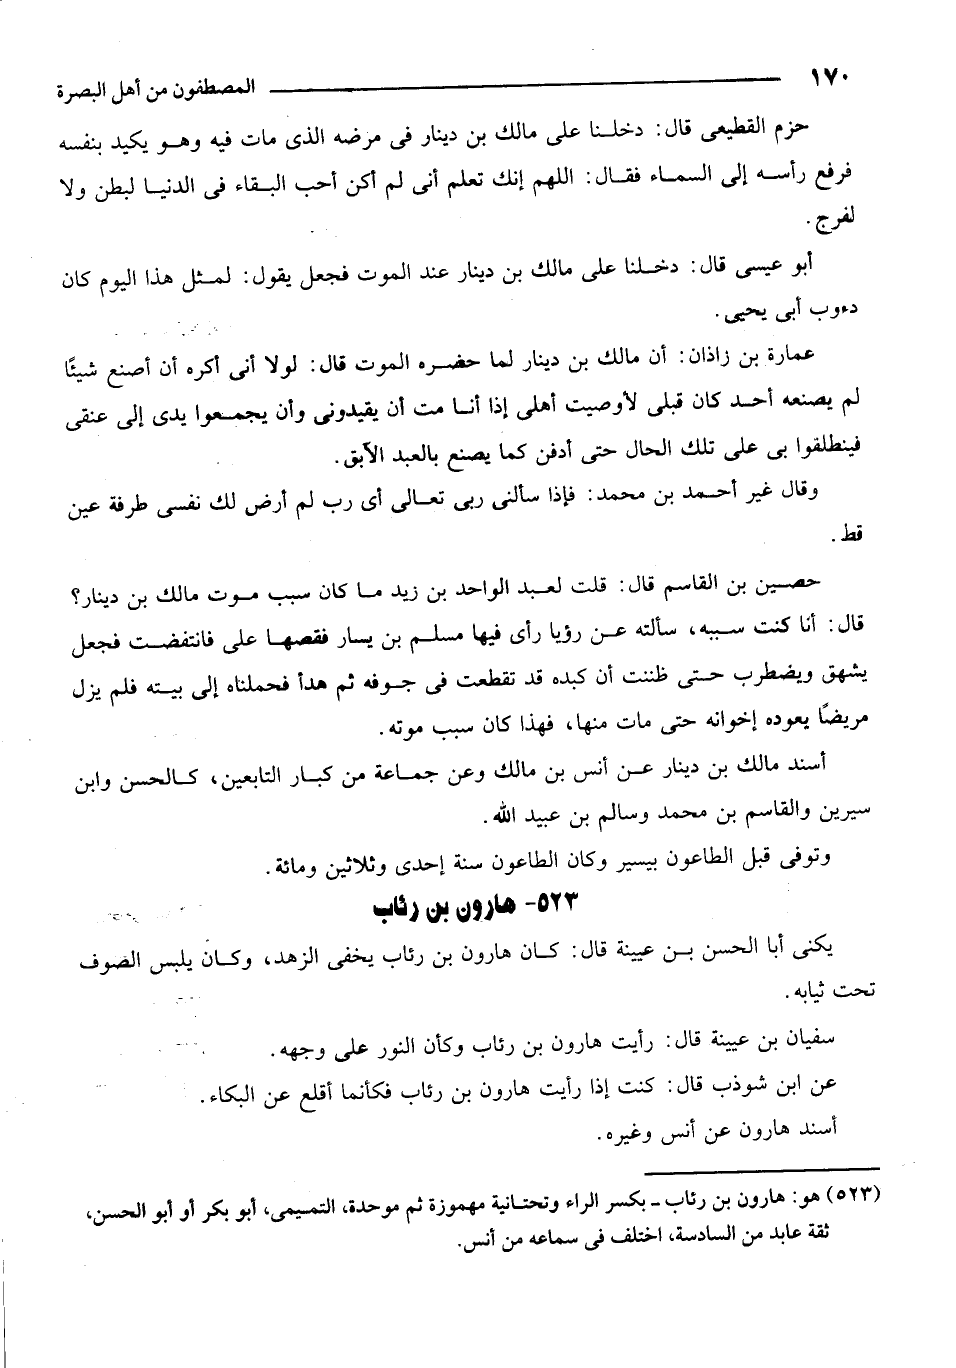 ١٧٠ المصطفون من أهل البصرة
حزم القطيعى قال: دخلنا على مالك بن دينار فى مرضه الذى مات فيه وهو يكيد بنفسه
فرفع رأسه إلى السماء فقال: اللهم إنك تعلم أنى لم أكن أحب البقاء فى الدنيا لبطن ولا
لفرج.
أبو عيسى قال: دخلنا على مالك بن دينار عند الموت فجعل يقول: لمثل هذا اليوم كان
دءوب أبى يحيى.
عمارة بن زاذان: أن مالك بن دينار لما حضره الموت قال: لولا أنى أكره أن أصنع شيئًا
لم يصنعه أحد كان قبلى لأوصيت أهلى إذا أنا مت أن يقيدونى وأن يجمعوا يدى إلى عنقى
فينطلقوا بى على تلك الحال حتى أدفن كما يصنع بالعبد الآبق.
وقال غير أحمد بن محمد: فإذا سألنى ربى تعالى أى رب لم أرض لك نفسى طرفة عين
قط.
حصين بن القاسم قال: قلت لعبد الواحد بن زيد ما كان سبب موت مالك بن دينار؟
قال: أنا كنت سببه، سألته عن رؤيا رأى فيها مسلم بن يسار فقصها على فانتفضت فجعل
يشهق ويضطرب حتى ظننت أن كبده قد تقطعت فى جوفه ثم هدأ فحملناه إلى بيته فلم يزل
مريضًا يعوده إخوانه حتى مات منها، فهذا كان سبب موته.
أسند مالك بن دينار عن أنس بن مالك وعن جماعة من كبار التابعين، كالحسن وابن
سيرين والقاسم بن محمد وسالم بن عبيد الله.
وتوفى قبل الطاعون بيسير وكان الطاعون سنة إحدى وثلاثين ومائة.
٥٢٣- هارون بن رئاب
يكنى أبا الحسن بن عيينة قال: كان هارون بن رئاب يخفى الزهد، وكان يلبس الصوف
تحت ثيابه.
سفيان بن عيينة قال: رأيت هارون بن رئاب وكأن النور على وجهه.
عن ابن شوذب قال: كنت إذا رأيت هارون بن رئاب فكأنما أقلع عن البكاء.
أسند هارون عن أنس وغيره.
(٥٢٣) هو: هارون بن رئاب - بكسر الراء وتحتانية مهموزة ثم موحدة، التميمى، أبو بكر أو أبو الحسن،
ثقة عابد من السادسة، اختلف فى سماعه من أنس.